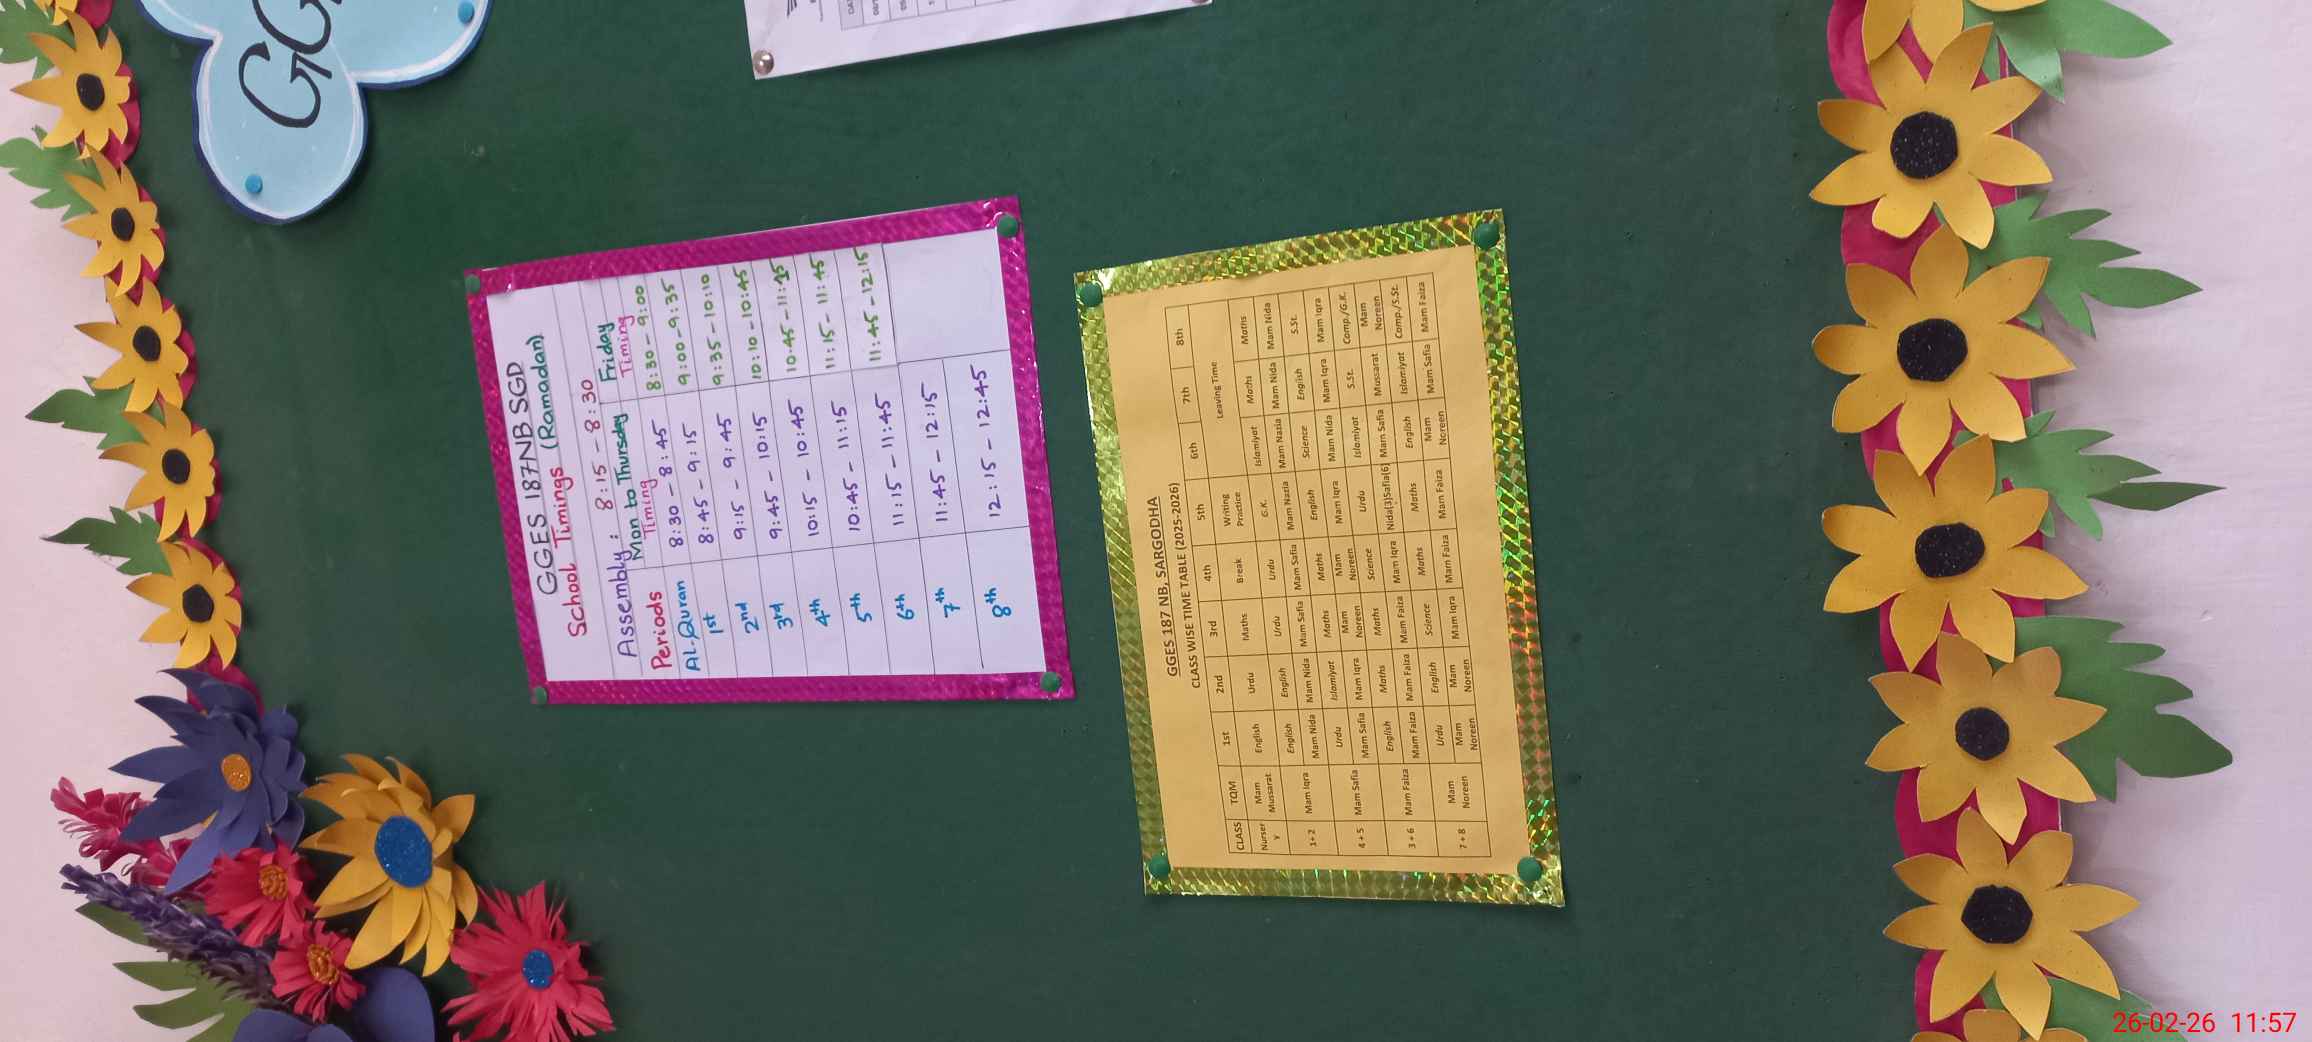 GGES 187NB SGD
School Timings (Ramadan)
Assembly : 8:15 - 8:30
Periods Mon to Thursday Timing Friday Timing
AL-Quran 8:30 - 8:45 8:30 - 9:00
1st 8:45 - 9:15 9:00 - 9:35
2nd 9:15 - 9:45 9:35 - 10:10
3rd 9:45 - 10:15 10:10 - 10:45
4th 10:15 - 10:45 10:45 - 11:15
5th 10:45 - 11:15 11:15 - 11:45
6th 11:15 - 11:45 11:45 - 12:15
7th 11:45 - 12:15
8th 12:15 - 12:45
GGES 187 NB, SARGODHA
CLASS WISE TIME TABLE (2025-2026)
CLASS TQM 1st 2nd 3rd 4th 5th 6th 7th 8th
Nursery Mam Mussarat English Urdu Maths Break Writing Practice Leaving Time
1+2 Mam Iqra English English Urdu Urdu G.K. Islamiyat Maths Maths
Mam Nida Mam Nida Mam Safia Mam Safia Mam Nazia Mam Nazia Mam Nida Mam Nida
4+5 Mam Safia Urdu Islamiyat Maths Maths English Science English S.St.
Mam Safia Mam Iqra Mam Noreen Mam Noreen Mam Iqra Mam Nida Mam Iqra Mam Iqra
3+6 Mam Faiza English Maths Maths Science Urdu Islamiyat S.St. Comp./G.K.
Mam Faiza Mam Faiza Mam Faiza Mam Iqra Nida(3)Safia(6) Mam Safia Mussarat Mam Noreen
7+8 Mam Noreen Urdu English Science Maths Maths English Islamiyat Comp./S.St.
Mam Noreen Mam Noreen Mam Iqra Mam Faiza Mam Faiza Mam Noreen Mam Safia Mam Faiza
26-02-26 11:57